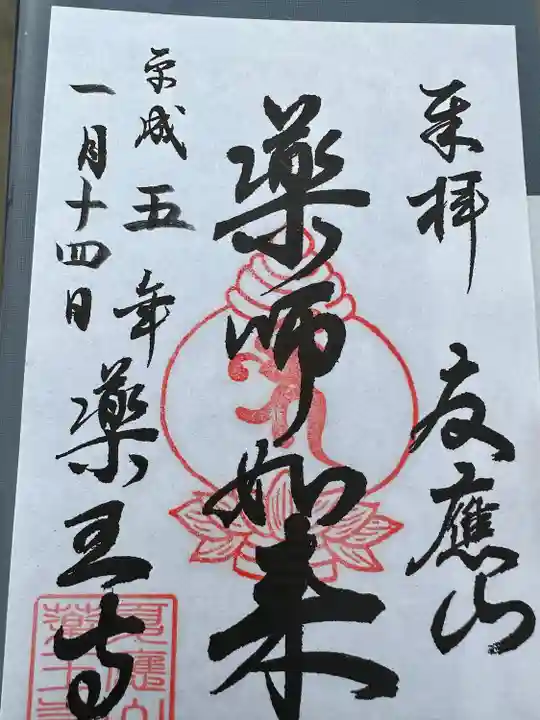 来拝
友應山
薬師如来
平成五年
一月十四日
薬王寺